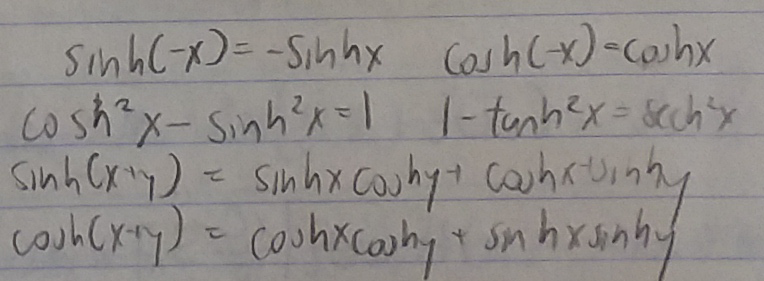 sinh(-x) = -sinhx cosh(-x) = coshx
cosh²x - sinh²x = 1 1 - tanh²x = sech²x
sinh(x+y) = sinhx coshy + coshx sinhy
cosh(x+y) = coshx coshy + sinhx sinhy